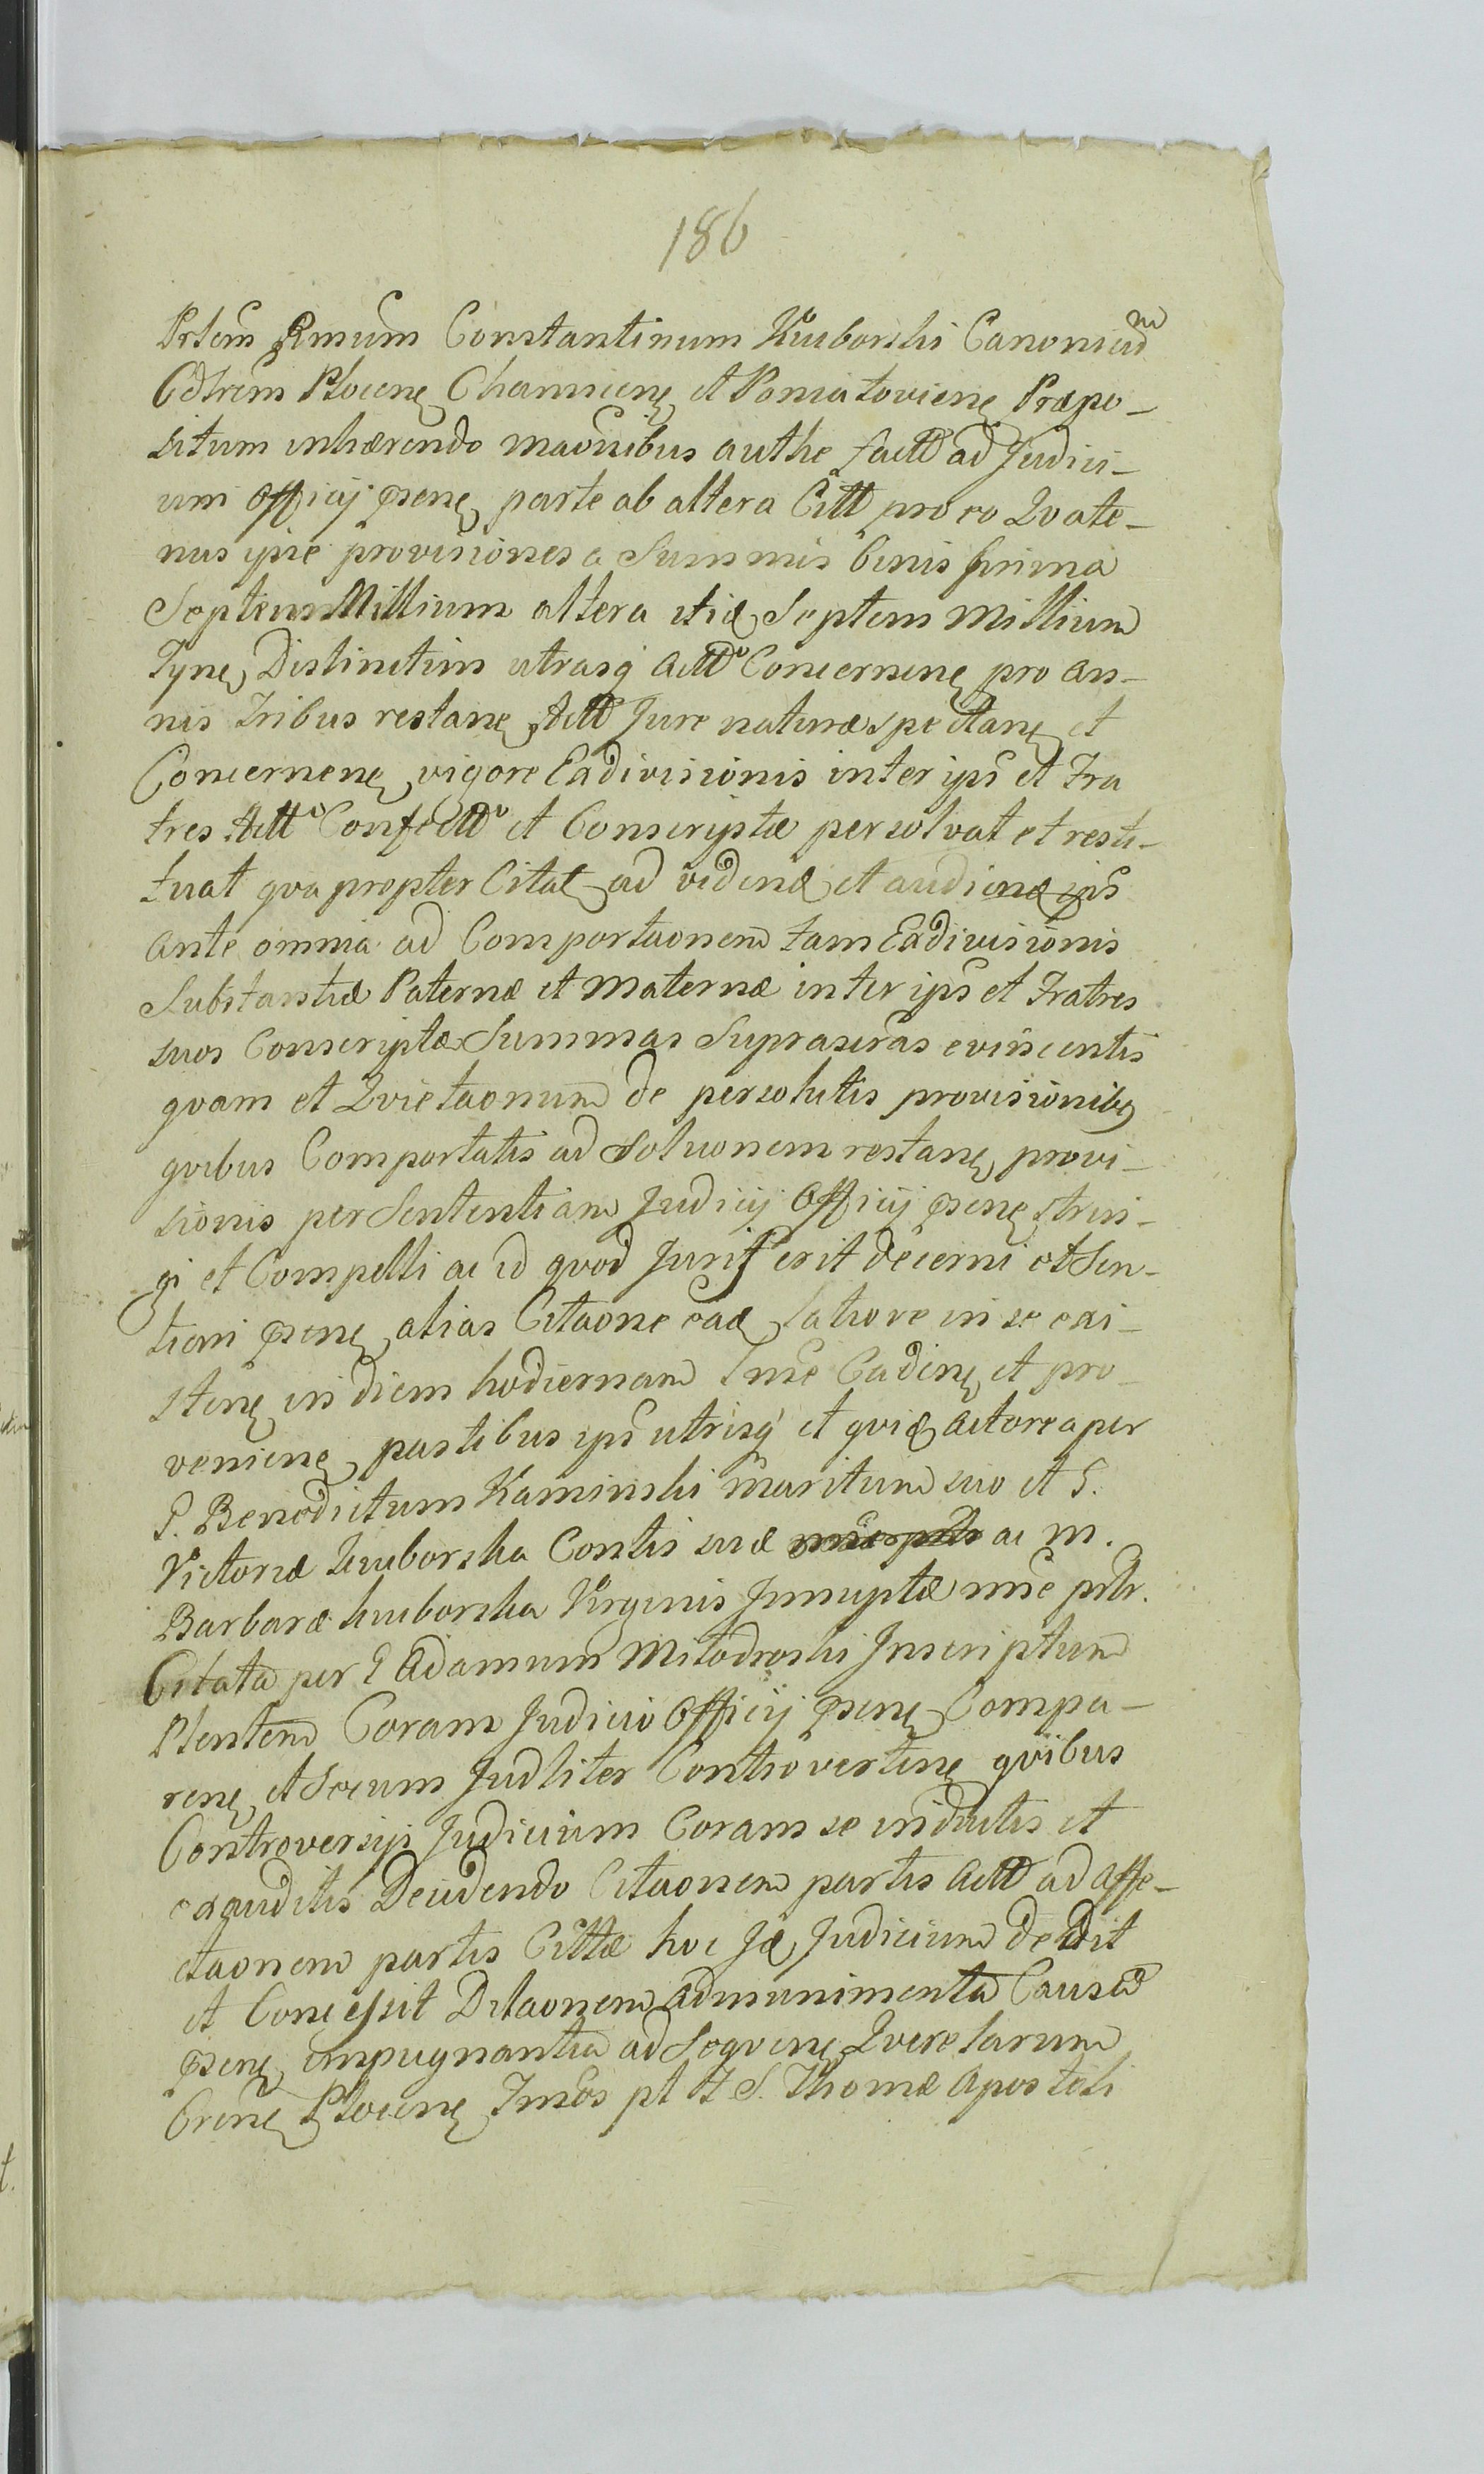 186
Prlem Rmum Constantinum Kuiborski Canonicum
Cdtrem Plocenę Charnicenę et Poniatovienę Præpo-
situm inhærendo maoñibus authe factt ad Judici-
um Officij psenę parte ab altera Citt pro eo Qvate-
nus ipse provisiones a Summis binis prima
Septem Millium altera etiæ Septem Millium
Tynę Distinctim utrasq Actt Concernenę pro an-
nis Tribus restanę Actt Jure naturæ spectanę et
Concernenę vigore Exdivisionis inter ips et Fra
tres Actt Confectt et Conscriptæ persolvat et resti-
tuat qvapropter Citat ad videnđ et audienđ ips
ante omnia ad Comportaonem tam Exdivisionis
Substantiæ Paternæ et Maternæ inter ips et Fratres
suos Conscriptæ Summas Suprascras evincentis
qvam et Qvietaonum de persolutis provisionibq
qvibus Comportatis ad Soluonem restanę provi-
sionis per Sententiam Judicij Officij psenę strin-
gi et Compelli ac id qvod Juris erit decerni et Sen-
tiari psenę alias Citaone eađ latiore in se exi-
stenę in diem hodiernam Tme Cadenę et pro-
venienę partibus ips utrisq et qvid actorea per
G. Benedictum Kaminski maritum suo et G.
Victoriæ Kuiborska Contis suæ ac M.
Barbaræ Kuiborska Virginis Innuptæ nne prtr.
Citata per G Adamum Milodroski Inscriptum
Plentem Coram Judicio Officij psenę Compa-
renę et Secum Judliter Controvertenę qvibus
Controversijs Judicium Coram se inductis et
exauditis Decidendo Citaonem partis Actt ad affe-
ctaonem partis Cittæ hoc Jđ Judicium dedit
et Concessit Dilaonem ad munimenta Causæ
psenę impugnantia ad Seqvenę Qverelarum
Crenę Plocenę Tmõs pt F S. Thomæ Apostoli